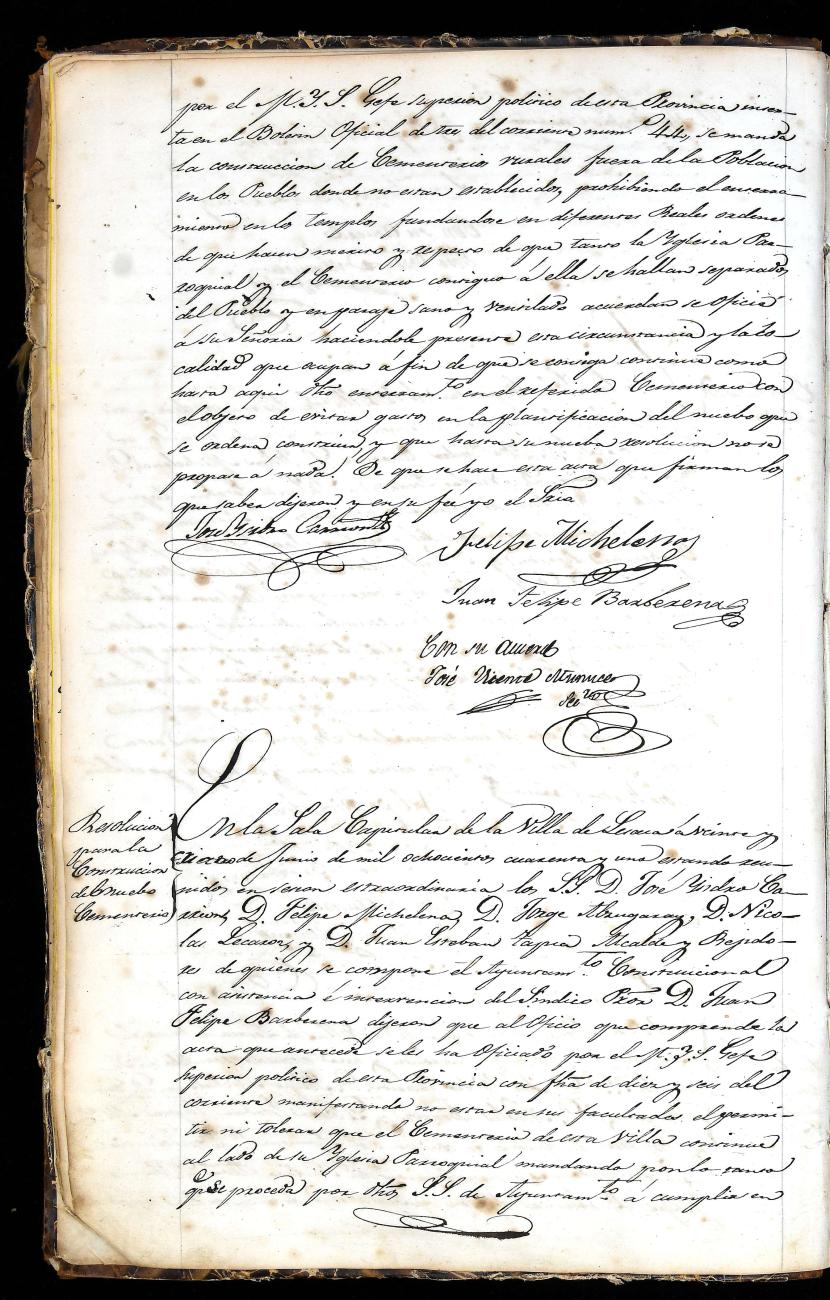 por el M. Y. S. Gefe superior politico de esta Provincia inser-
ta en el Boletin Oficial de tres del corriente num.º 44, se manda
la construccion de Cementerios rurales fuera de la Poblacion
en los Pueblos donde no estan establecidos, prohibiendo el enterra-
miento en los templos fundandose en diferentes Reales ordenes
de que hacen merito y respecto de que tanto la Yglesia Par-
roquial y el Cementerio contiguo á ella se hallan separados
del Pueblo y en parage sano y ventilado acuerdan se oficie
á su Señoria haciendole presente esta circunstancia y la lo-
calidad que ocupan á fin de que se consiga continue como
hasta aqui dho enterram.to en el referido Cementerio con
el objeto de evitar gastos en la plantificacion del nuebo que
se ordena construir, y que hasta su nueba resolucion no se
propase á nada. De que se hace esta acta que firman los
que saben dijeron y en su fee yo el Srio
José Ysidro
Felipe Michelena
Juan Felipe Barberena
Con su acuerdo
José Vicente
Sec.rio
Resolucion
para la
Construccion
del Nuebo
Cementerio
En la Sala Capitular de la Villa de Lesaca á veinte y
de Junio de mil ochocientos cuarenta y uno estando reu-
nidos en sesion estraordinaria los SS. D. José Ysidro Ca-
D. Felipe Michelena, D. Jorge D. Nico-
las y D. Juan Esteban Tapia Alcalde y Regido-
res de quienes se compone el Ayuntam.to Constitucional
con asistencia é intervencion del Sindico Pror D. Juan
Felipe Barberena dijeron que al Oficio que comprende la
acta que antecede se les ha Oficiado por el M. Y. S. Gefe
superior politico de esta Provincia con fha de diez y seis del
corriente manifestando no estar en sus facultades el permi-
tir ni tolerar que el Cementerio de esta Villa continue
al lado de su Yglesia Parroquial mandando por lo tanto
que se proceda por dhos S.S. de Ayuntam.to á cumplir en